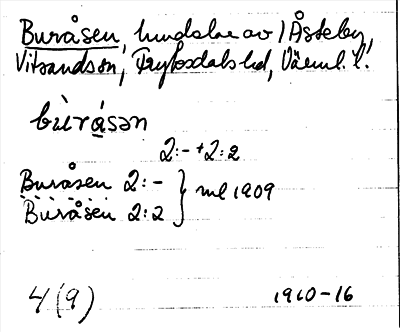 Buråsen, hmdslae av 1 Åsteby,
Vitsands sn, Fryksdals hd, Värml. l.
bùråsən
2:- + 2:2
Buråsen 2:- } ml 1909
Buråsen 2:2
4 (9) 1910-16